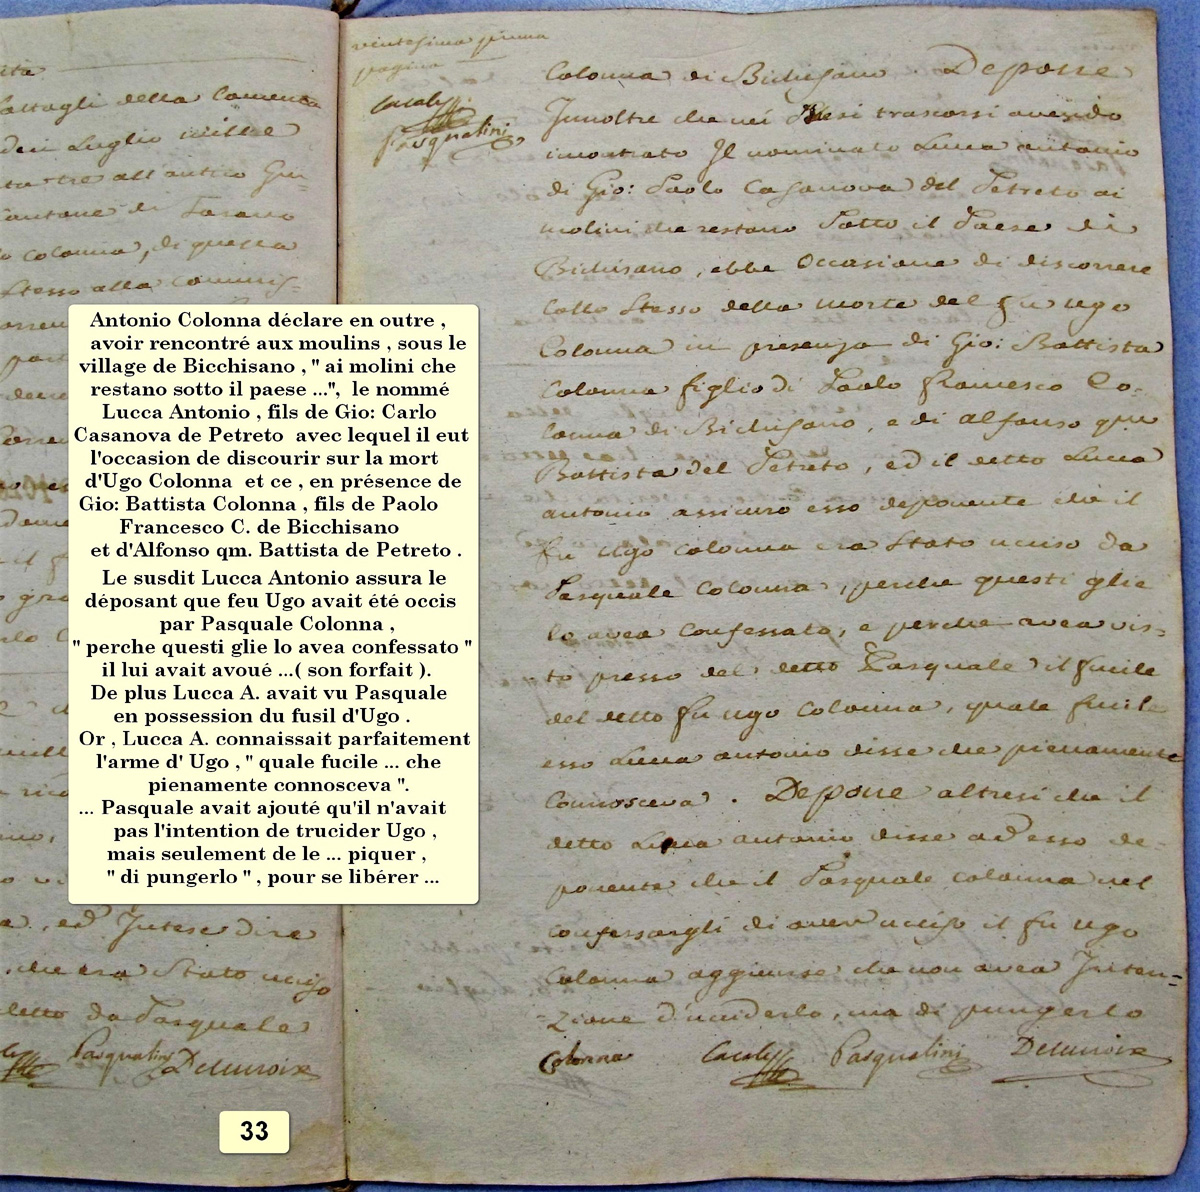 ita
dattagli della Comenda
dei Luglio mille
ta tre all'antro Giu-
antone di
o Colonna, di questa
Stesso alla Commis-
a, ed Intese dire
, che era Stato uciso
detto da Pasquale
Pasqualini Delauroix
vintesima prima
pagina
Pasqualini
Colonna di Bichisano. Deposse
Innoltre che nei Mesi trascorsi avendo
incontrato Il nominato Lucca antonio
di Gio: Paolo Casanova del Petreto ai
molini che restano Sotto il Paese di
Bichisano, ebbe Occasione di discorrere
collo Stesso della morte del fu ugo
Colonna in presenza di Gio: Battista
Colonna figlio di Paolo francesco Co-
lonna di Bichisano, e di alfonso qm
Battista del Petreto, ed il detto Lucca
antonio assicuro esso deponente che il
fu ugo colonna era Stato ucciso da
Pasquale Colonna, perche questi glie
lo avea Confessato, e perche avea vis-
to presso del detto Pasquale il fucile
del detto fu ugo Colonna, quale fucile
esso Lucca antonio disse che pienamente
Connosceva. Depone altresi che il
detto Lucca antonio disse ad esso de-
ponente che il Pasquale colonna nel
confessargli di aver ucciso il fu ugo
Colonna aggiunse che non avea Inten-
=zione d'uciderlo, ma di pungerlo
Colonna Pasqualini Delauroix
Antonio Colonna déclare en outre ,
avoir rencontré aux moulins , sous le
village de Bicchisano , " ai molini che
restano sotto il paese ...", le nommé
Lucca Antonio , fils de Gio: Carlo
Casanova de Petreto avec lequel il eut
l'occasion de discourir sur la mort
d'Ugo Colonna et ce , en présence de
Gio: Battista Colonna , fils de Paolo
Francesco C. de Bicchisano
et d'Alfonso qm. Battista de Petreto .
Le susdit Lucca Antonio assura le
déposant que feu Ugo avait été occis
par Pasquale Colonna ,
" perche questi glie lo avea confessato "
il lui avait avoué ...( son forfait ).
De plus Lucca A. avait vu Pasquale
en possession du fusil d'Ugo .
Or , Lucca A. connaissait parfaitement
l'arme d' Ugo , " quale fucile ... che
pienamente connosceva ".
... Pasquale avait ajouté qu'il n'avait
pas l'intention de trucider Ugo ,
mais seulement de le ... piquer ,
" di pungerlo " , pour se libérer ...
33